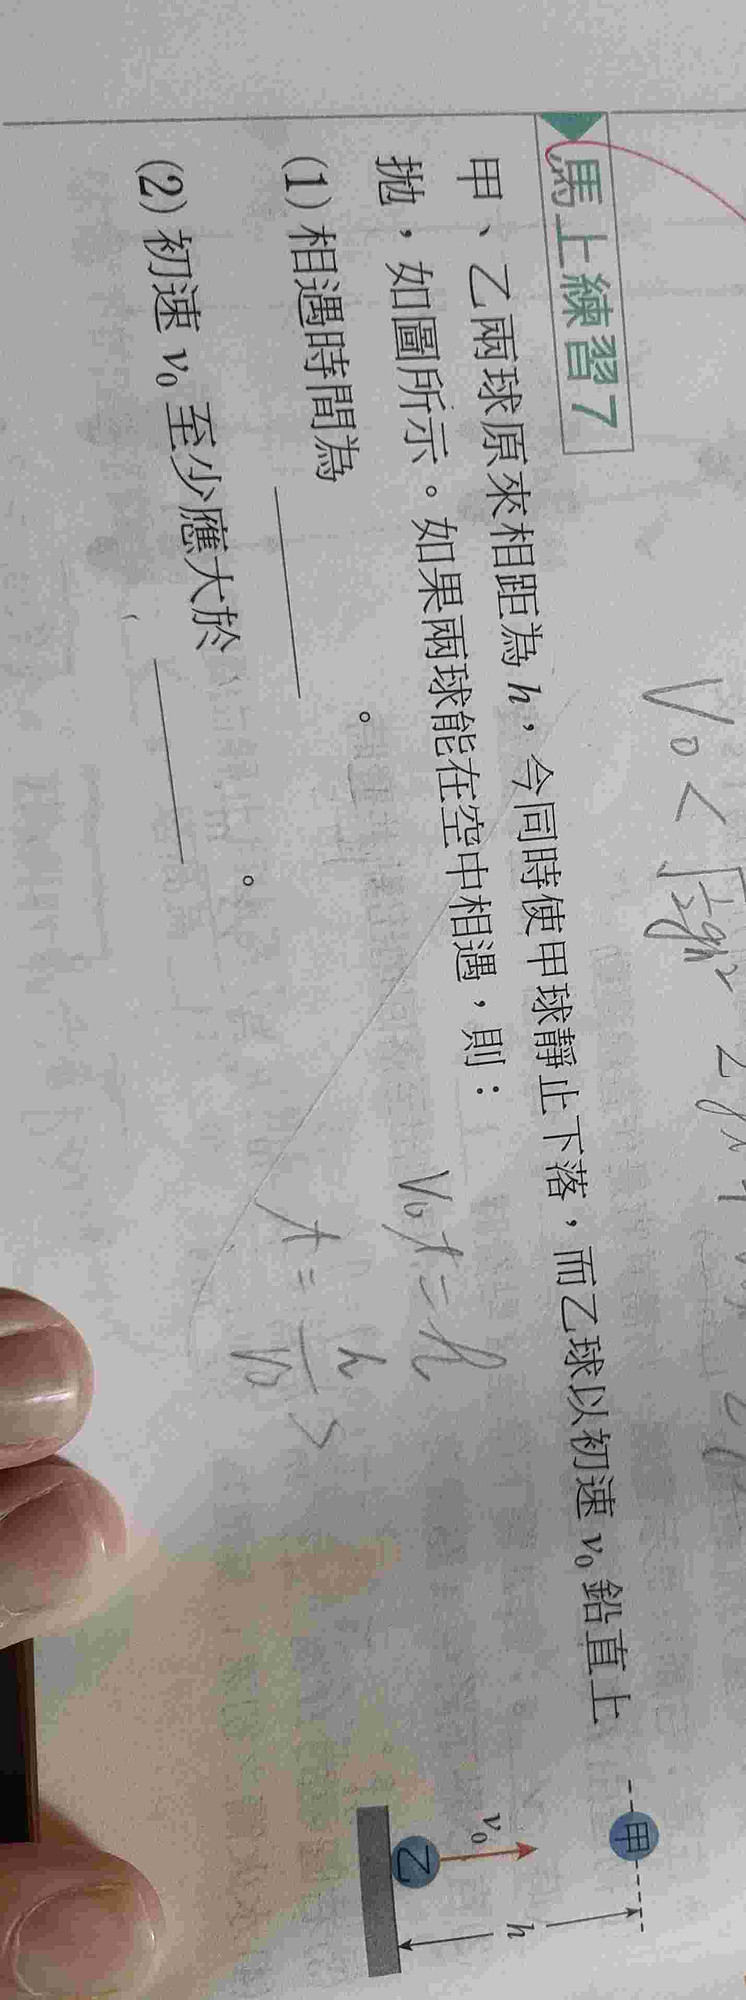 馬上練習7
甲、乙兩球原來相距為h，今同時使甲球靜止下落，而乙球以初速v₀鉛直上
拋，如圖所示。如果兩球能在空中相遇，則：
(1) 相遇時間為________。
(2) 初速v₀至少應大於________。
V₀t=h
t=h/V₀>
甲
v₀
乙
h